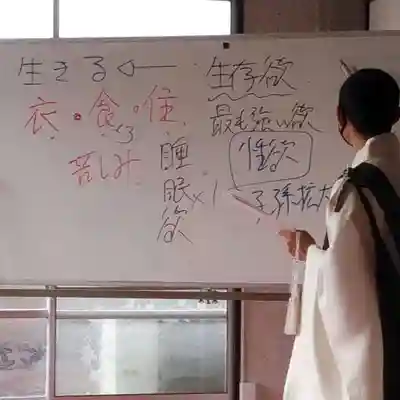 生きる ← 生存欲
衣・食・住 最も強い欲
苦しみ 睡眠欲 性欲
子孫拡大